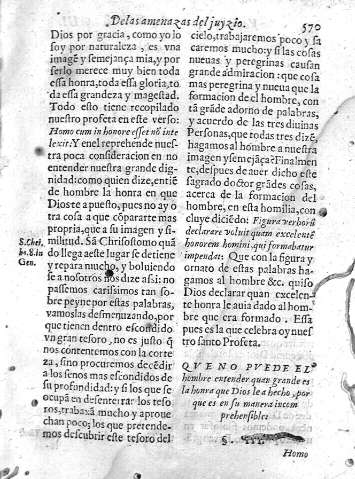 De las amenazas del juyzio. 570
Dios por gracia, como yo lo
soy por naturaleza, es vna
imagẽ y semejança mia, y por
serlo merece muy bien toda
essa honra, toda essa gloria, to
da essa grandeza y magestad.
Todo esto tiene recopilado
nuestro profeta en este verso:
Homo cum in honore esset nõ inte
lexit: Y en el reprehende nues-
tra poca consideracion en no
entender nuestra grande dig-
nidad: como quien dize, entiē
de hombre la honra en que
Dios te a puesto, pues no ay o
tra cosa a que cõpararte mas
propria, que a su imagen y si-
S. Chri. militud. Sã Chrisostomo quã
ho. 8. in do llega a este lugar se detiene
Gen. y repara mucho, y boluiendo
se a nosotros nos dize assi: no
passemos carissimos tan so-
bre peyne por estas palabras,
vamoslas desmenuzando, por
que tienen dentro escondido
vn gran tesoro, no es justo q̃
nos contentemos con la corte
za, sino procuremos decēdir
a los senos mas escondidos de
su profundidad: y si los que se
ocupã en desenterrar los teso
ros, trabajã mucho y aproue
chan poco; los que pretende-
mos descubrir este tesoro del
cielo, trabajaremos poco y sa
caremos mucho: y si las cosas
nueuas y peregrinas causan
grande admiracion: que cosa
mas peregrina y nueua que la
formacion del hombre, con
tã grãde adorno de palabras,
y acuerdo de las tres diuinas
Personas, que todas tres dizē,
hagamos al hombre a nuestra
imagen y semejãça? Finalmen
te, despues de auer dicho este
sagrado doctor grãdes cosas,
acerca de la formacion del
hombre, en esta homilia, con
cluye diciēdo: Figura verborũ
declarare voluit quam excelentē
honorem homini, qui formabatur
impendat: Que con la figura y
ornato de estas palabras ha-
gamos al hombre &c. quiso
Dios declarar quan excelen-
te honra le auia dado al hom-
bre que era formado. Essa
pues es la que celebra oy nues
tro santo Profeta.
QVE NO PVEDE EL
hombre entender quan grande es
la honra que Dios le a hecho, por
que es en su manera incom
prehensible:
§. III.
Homo